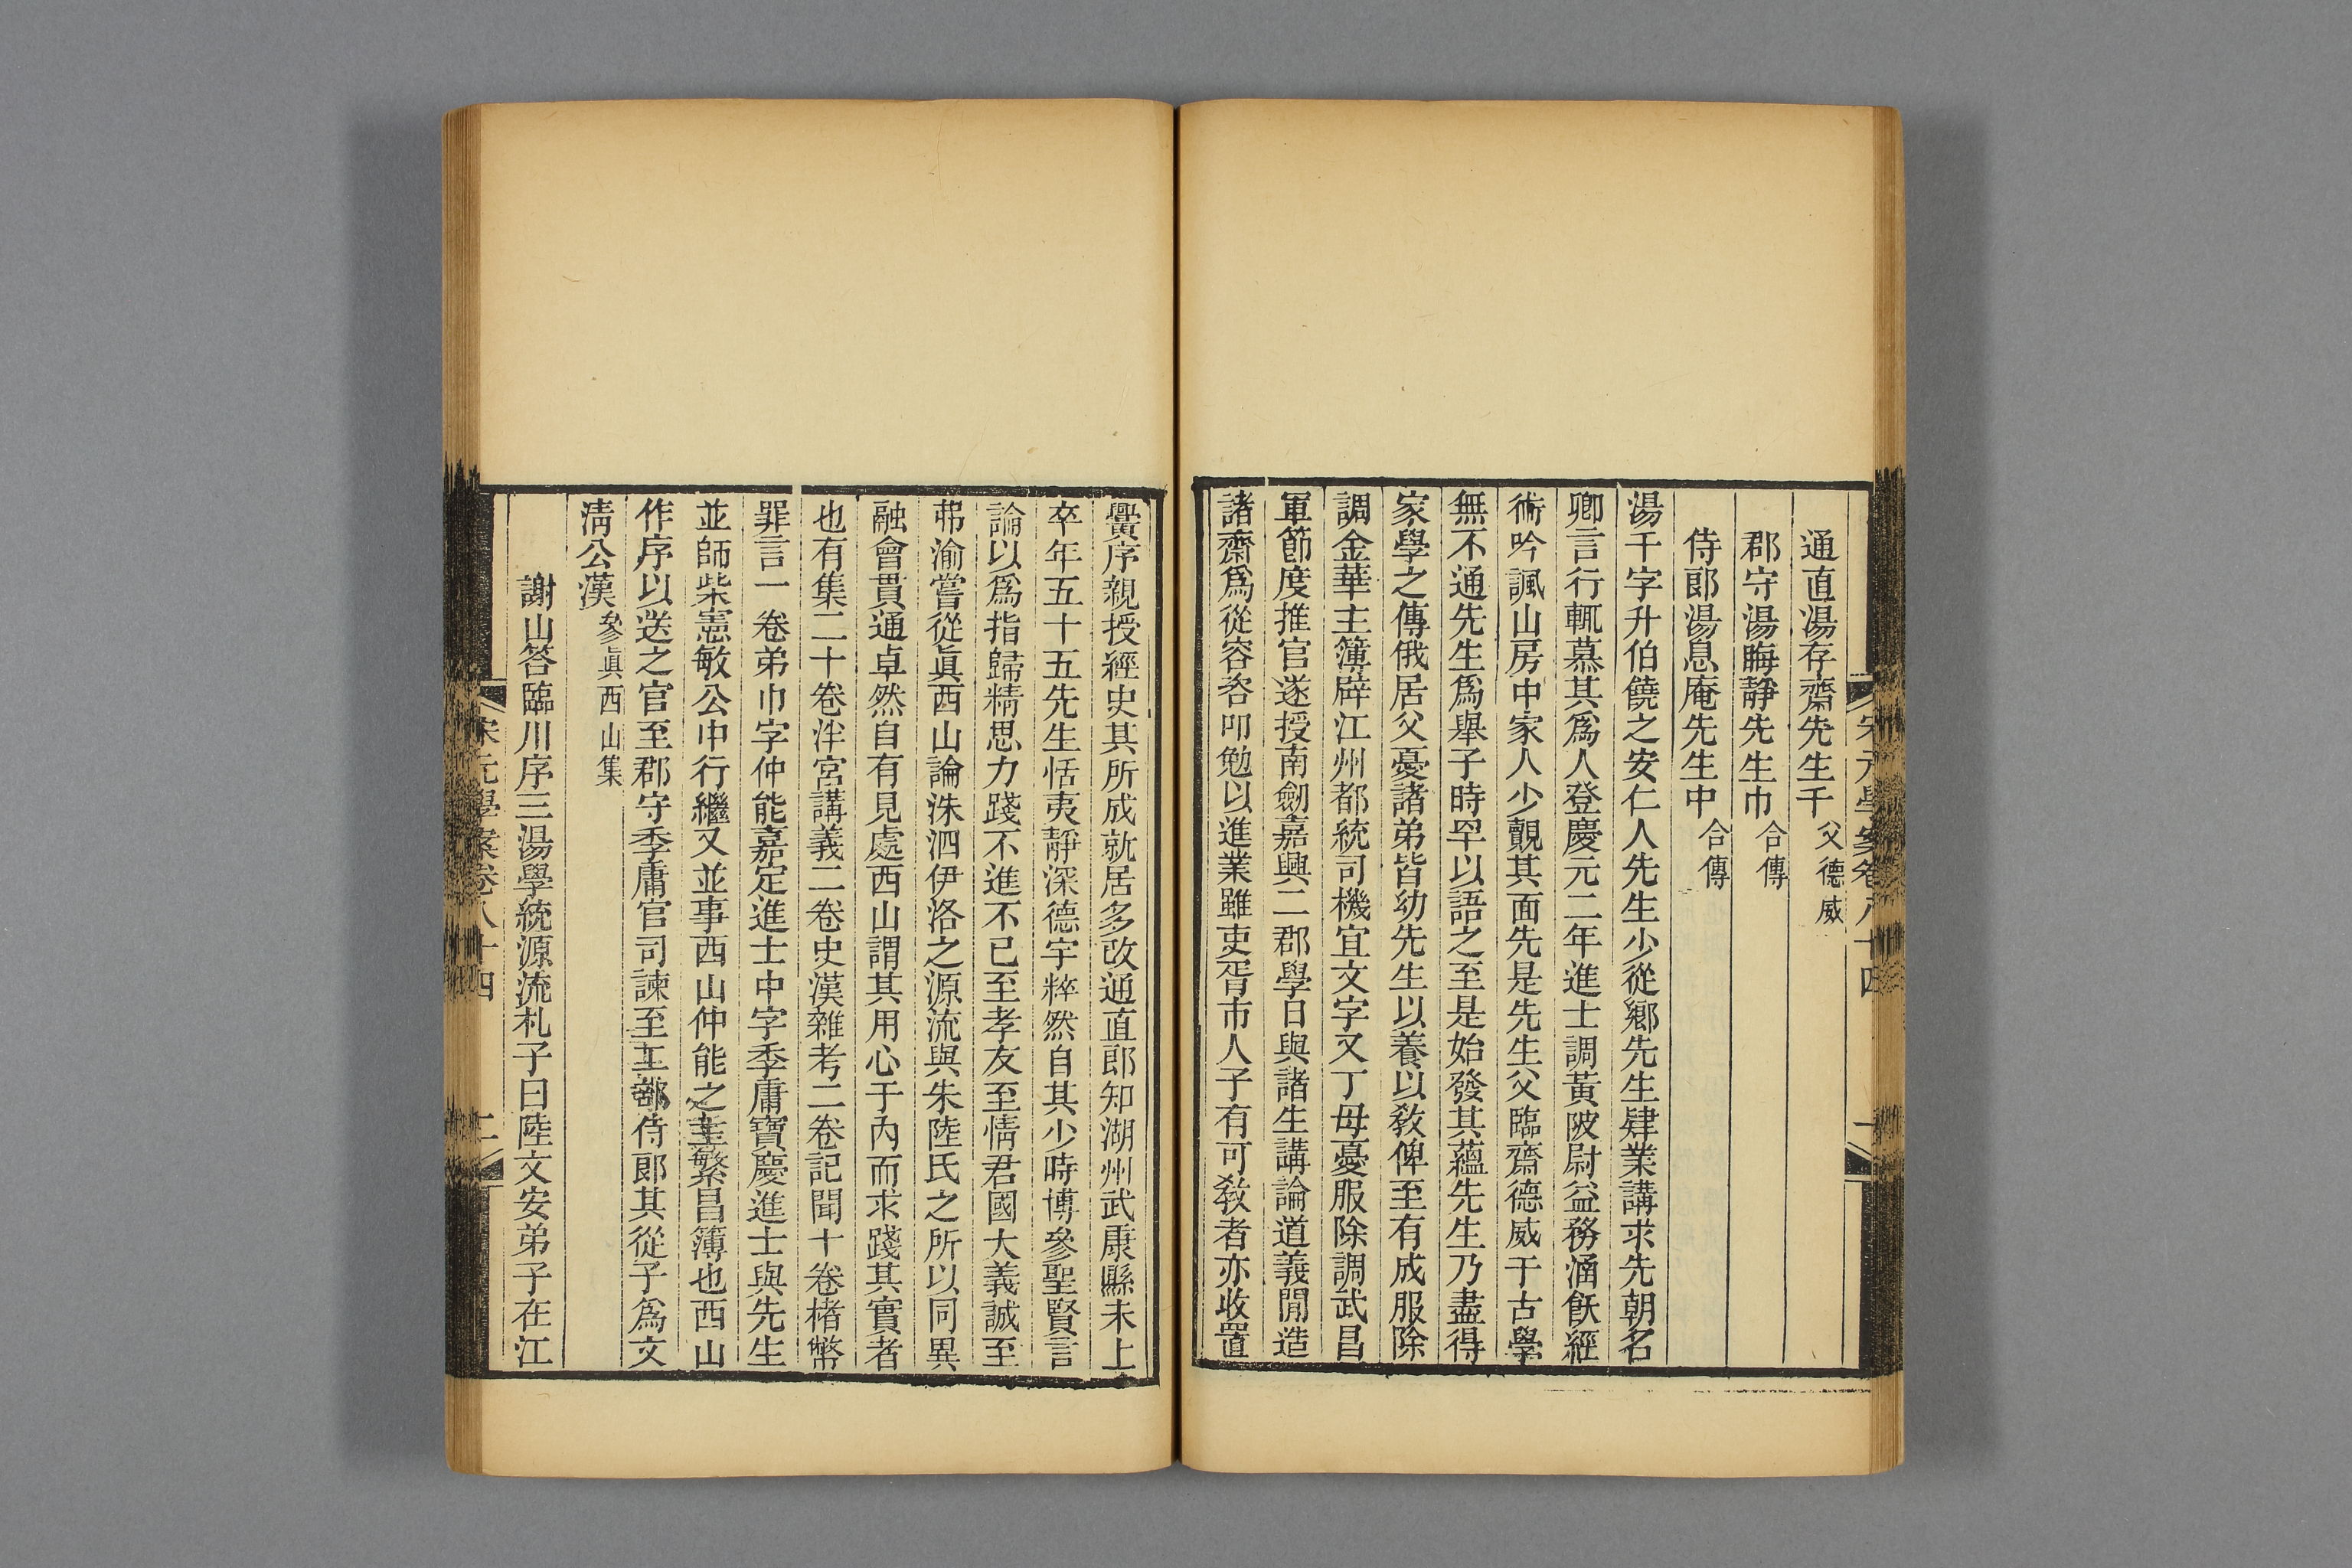 通直湯存齋先生千父德威
郡守湯晦靜先生巾合傳
侍郎湯息庵先生中合傳
湯千字升伯饒之安仁人先生少從鄉先生肄業講求先朝名
卿言行輒慕其爲人登慶元二年進士調黃陂尉益務涵飫經
術吟諷山房中家人少覿其面先是先生父臨齋德威干古學
無不通先生爲舉子時罕以語之至是始發其蘊先生乃盡得
家學之傳俄居父憂諸弟皆幼先生以養以敎俾至有成服除
調金華主簿辟江州都統司機宜文字又丁母憂服除調武昌
軍節度推官遂授南劒嘉興二郡學日與諸生講論道義閒造
諸齋爲從容咨叩勉以進業雖吏胥市人子有可敎者亦收置
黌序親授經史其所成就居多改通直郎知湖州武康縣未上
卒年五十五先生恬夷靜深德宇粹然自其少時博參聖賢言
論以爲指歸精思力踐不進不已至孝友至情君國大義誠至
弗渝嘗從眞西山論洙泗伊洛之源流與朱陸氏之所以同異
融會貫通卓然自有見處西山謂其用心于內而求踐其實者
也有集二十卷泮宮講義二卷史漢雜考二卷記聞十卷楮幣
罪言一卷弟巾字仲能嘉定進士中字季庸寶慶進士與先生
並師柴憲敏公中行繼又並事西山仲能之主繁昌簿也西山
作序以送之官至郡守季庸官司諫至工部侍郎其從子爲文
淸公漢參眞西山集
謝山答臨川序三湯學統源流札子曰陸文安弟子在江
宋元學案卷八十四